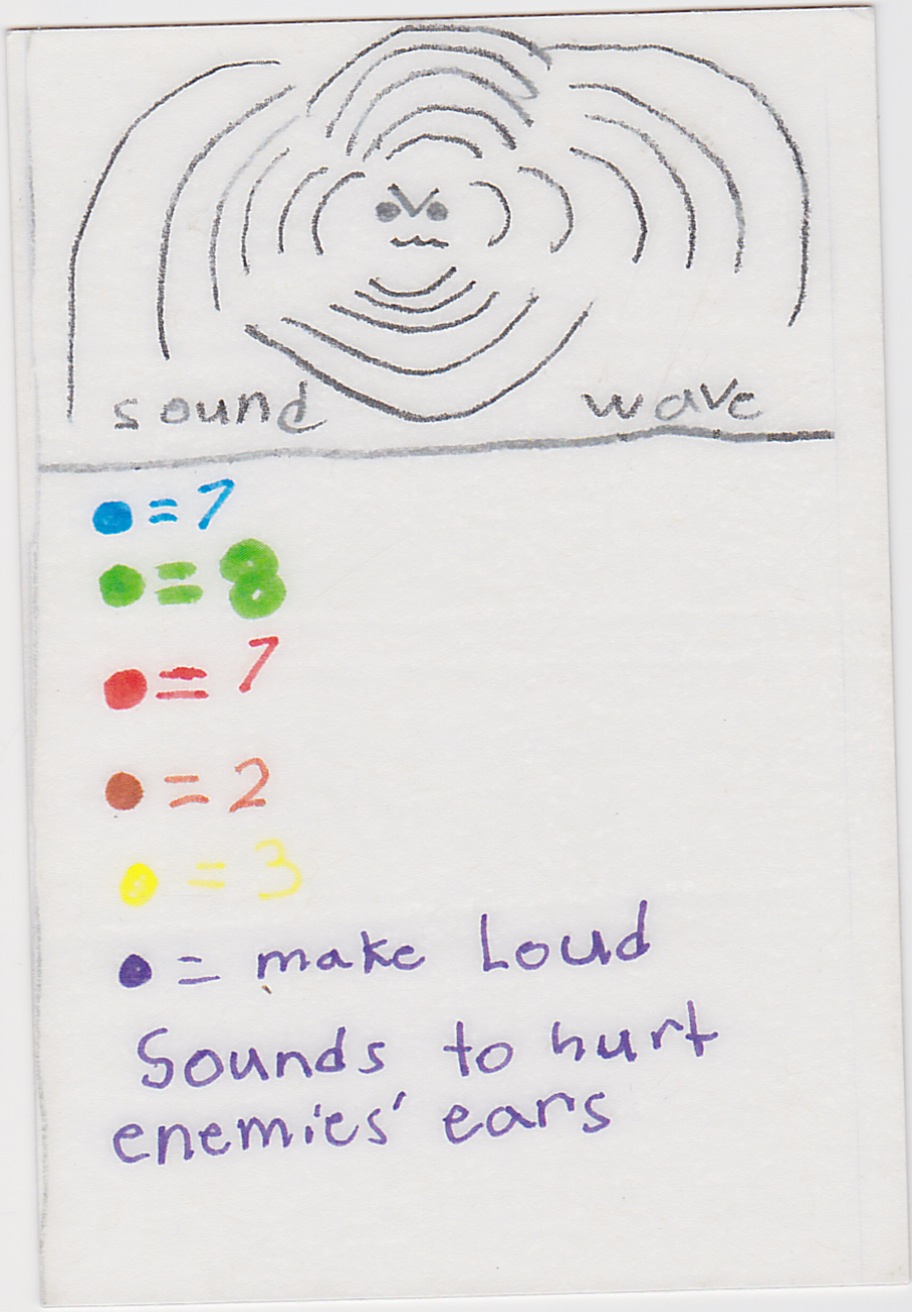 sound wave
= 7
= 8
= 7
= 2
= 3
= make Loud
Sounds to hurt
enemies' ears